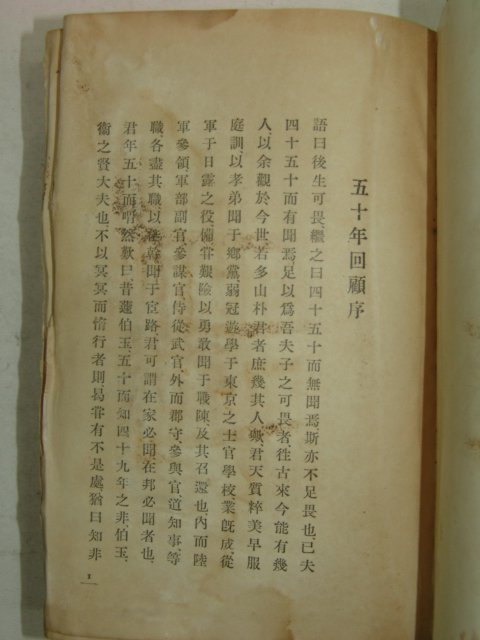 五十年回顧序
語曰後生可畏、繼之曰四十五十而無聞焉、斯亦不足畏也已、夫
四十五十而有聞焉、足以爲吾夫子之可畏者、徃古來今、能有幾
人、以余觀於今世、若多山朴君者、庶幾其人歟、君天質粹美、早服
庭訓、以孝弟聞于鄕黨、弱冠遊學于東京之士官學校、業旣成、從
軍于日露之役、備甞艱險、以勇敢聞于戰陳、及其召還也、內而陸
軍參領軍部副官參謀官侍從武官、外而郡守參與官道知事、等
職、各盡其職、以 幹聞于宦路、君可謂在家必聞、在邦必聞者也、
君年五十、而喟然歎曰、昔蘧伯玉、五十而知四十九年之非、伯玉、
衞之賢大夫也、不以冥冥而惰行者、則曷甞有不是處、猶曰知非
1